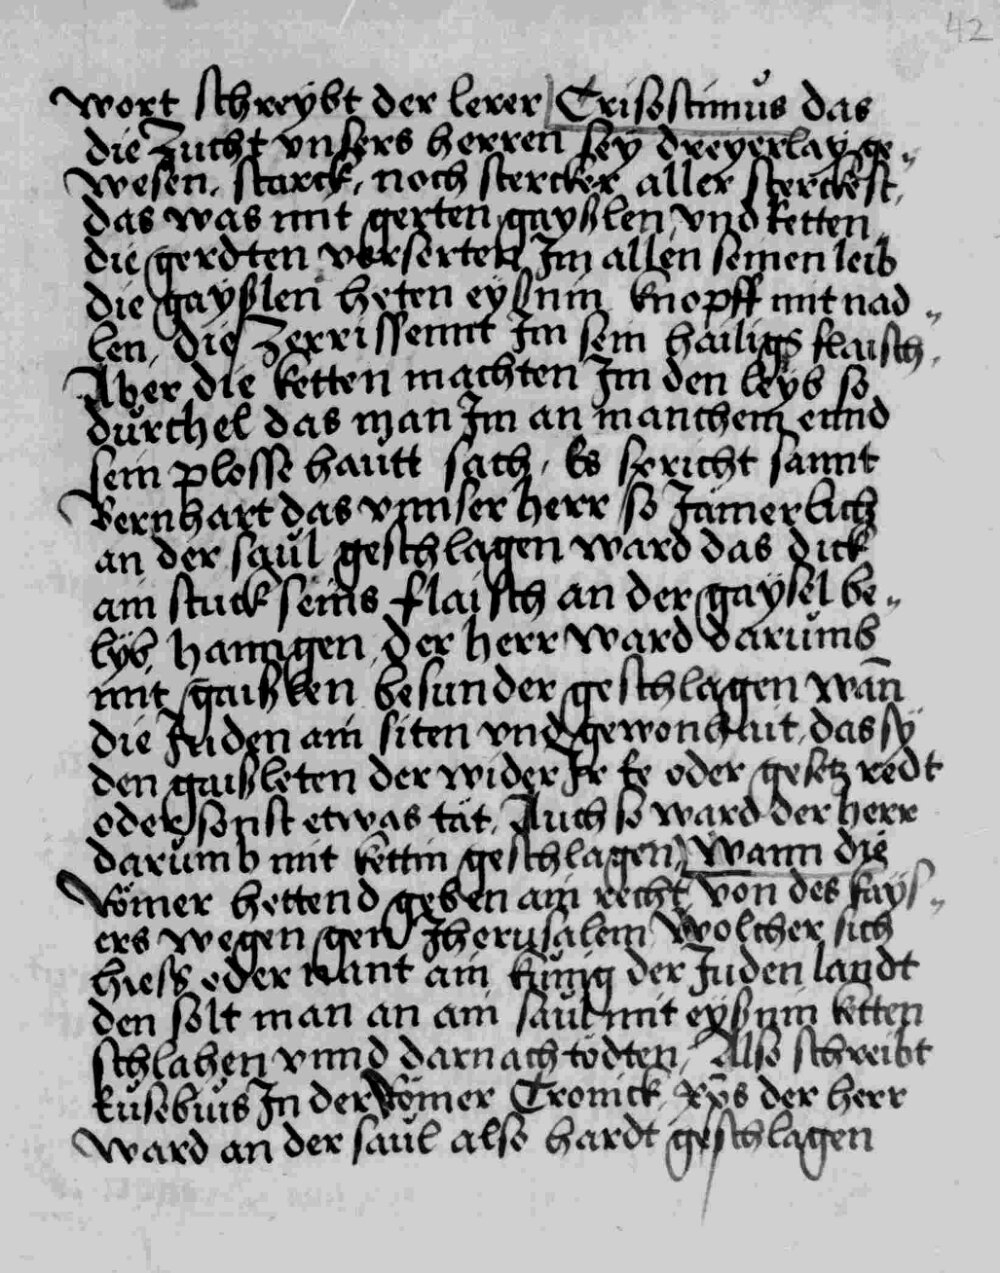 42
wort schreybt der lerer Crisostimus das
die zucht vnsers herren sey dreyerlay ge„
wesen, starck, noch stercker aller sterckest,
das was mit gerten gayßlen vnd ketten
die gerdten verserten Im allen seinen leib
die gayßlen heten eyßnin knopff mit nad„
len, die zerrissennt Im sein hailigs flaisch,
Aber die ketten machten Im den leyb so
durchel das man Im an manchem ennd
sein plosse hautt sach, Es spricht sannt
Bernhart das vnnser herr so Jamerlich
an der saul geschlagen ward das dick
ain stuck seins flaisch an der gaysel be„
lyb hanngen, der herr ward darumb
mit gaißlen besunder geschlagen wañ
die Juden ain siten vnd gewonhait, das sy
den gaißleten der wider Ir Ee oder gesetz redt
oder sonst etwas tät, Auch so ward der herr
darumb mit kettin geschlagen, Wann die
Römer hettend geben ain recht von des kays„
ers wegen gen Jherusalem Wolcher sich
hiess oder nant ain künig der Juden landt
den solt man an ain saul mit eyßnin ketten
schlahen vnnd darnach tödten, Also schreibt
Eusebius In der Römer Cronick, xp̄s der herr
ward an der saul also hardt geschlagen